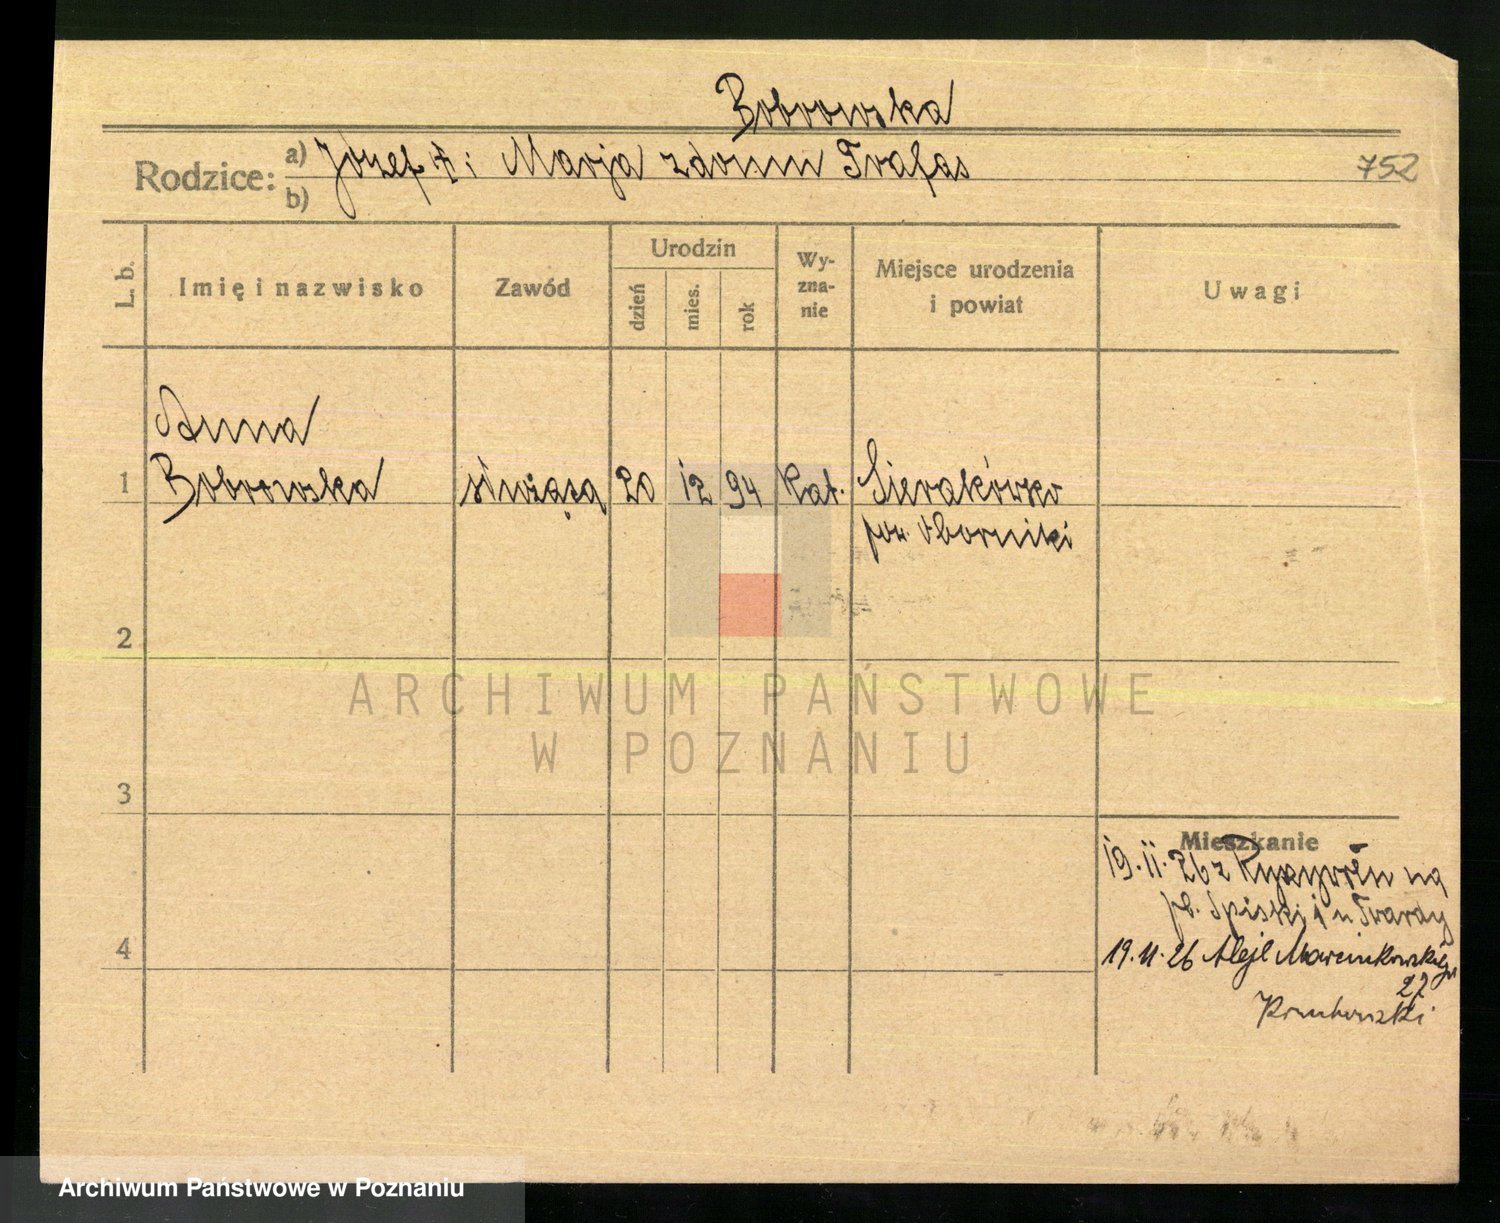 Bobrowska
Rodzice: a) Józef i Marja z domu Trafas
b)
752
L. b.
Imię i nazwisko
Zawód
Urodzin
dzień
mies.
rok
Wy-
zna-
nie
Miejsce urodzenia
i powiat
Uwagi
Anna
1 Bobrowska służąca 20 12 94 kat. Sierakówko
pow. Oborniki
2
3
4
Mieszkanie
19.11.26 z Ryczywołu na
pl. Spiski 1 u Twardy
19.11.26 Aleje Marcinkowskiego
27
ARCHIWUM PAŃSTWOWE
W POZNANIU
Archiwum Państwowe w Poznaniu